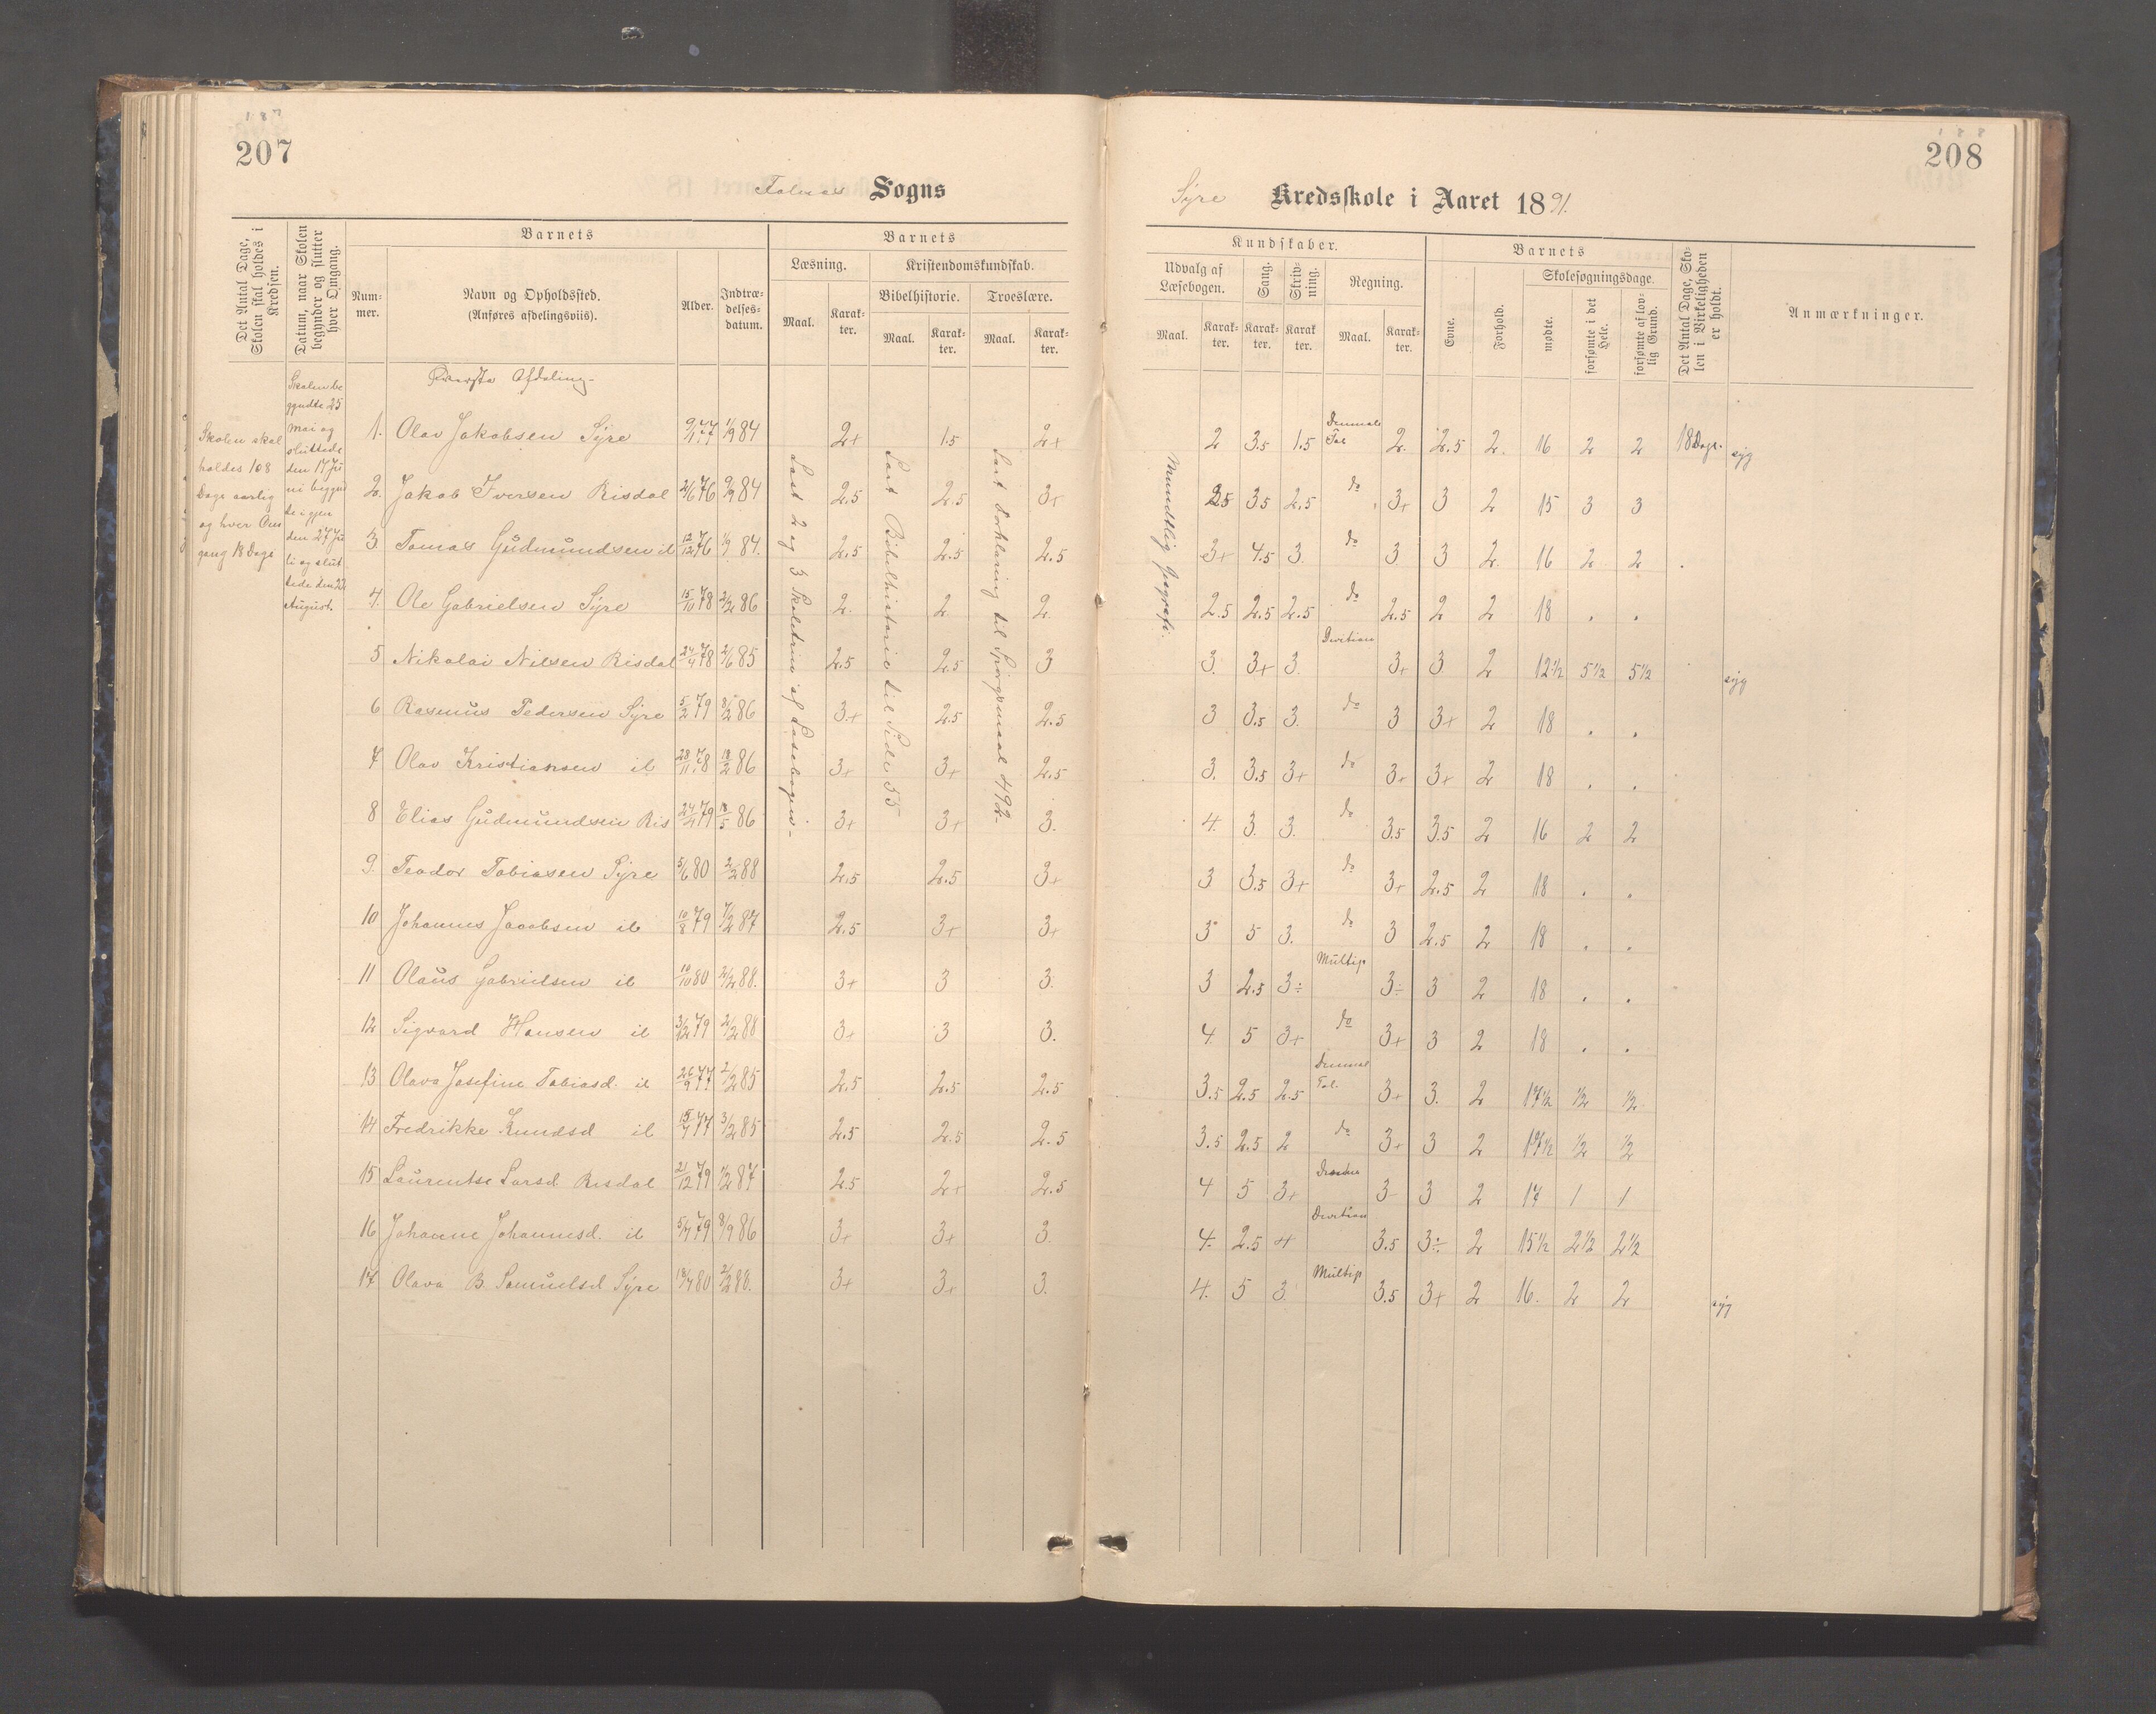 187
207
Sogns
Det Antal Dage, Skolen skal holdes i Kredsen.
Datum, naar Skolen begynder og slutter hver Omgang.
Barnets
Num-mer.
Navn og Opholdssted. (Anføres afdelingsviis).
Alder.
Indtræ-delses-datum.
Barnets
Læsning.
Kristendomskundskab.
Maal.
Karak-ter.
Bibelhistorie.
Maal.
Karak-ter.
Troeslære.
Maal.
Karak-ter.
Skolen skal
holdes 108
Dage aarlig
og hver Om
gang 18 Dage
Skolen be
gyndte 25
Mai og
sluttede
den 17 Ju
ni begynd
te igjen
den 27 Ju
li og slut
tede den 22
August.
Øverste Afdeling
1. Olav Jakobsen Syre 9/11 77 1/9 84 2+ 1.5 2+
2. Jakob Iversen Risdal 2/6 76 9/9 84 2.5 2.5 3+
3. Tomas Gudmundsen il 12/12 76 1/9 84. 2.5 2.5 2.5
4. Ole Gabrielsen Syre 15/10 78 2/2 86 2. 2 2
5 Nikolai Nilsen Risdal 24/4 78 2/6 85 2.5 2.5 3
6 Rasmus Pedersen Syre 5/2 79 8/2 86 3+ 2.5 2.5
7 Olav Kristiansen il 28/11 78 18/2 86 3+ 3+ 2.5
8 Elias Gudmundsen Ris 24/4 79 18/5 86 3+ 3+ 3.
9. Teodor Tobiasen Syre 5/6 80 2/2 88 2.5 2.5 3+
10 Johannes Jacobsen il 10/8 79 7/2 87 2.5 3+ 3+
11 Olaus Gabrielsen il 10/10 80 2/2 88. 3+ 3 3.
12 Sigvard Hansen il 3/12 79 2/2 88 3+ 3 3.
13 Olava Josefine Tobiasd. il 26/9 77 2/2 85 2.5 2.5 2.5
14 Fredrikke Knudsd il 15/7 77 3/2 85 2.5 2.5 2.5
15 Laurentse Larsd Risdal 21/12 79 1/2 87 2.5 2+ 2.5
16 Johanne Johannesd. il 5/4 79 8/9 86 3+ 3+ 3.
17 Olava B. Samuelsd Syre 18/7 80 2/2 88. 3+ 3+ 3.
Læst 2 og 3 Skoletrin af Læsebogen
Læst Bibelhistorie til Side 55
Læst Forklaring til Spørgsmaal 492
188
208
Syre Kredsskole i Aaret 1891.
Kundskaber.
Udvalg af Læsebogen.
Maal.
Karak-ter.
Sang.
Karak-ter.
Skriv-ning.
Karak ter.
Regning.
Maal.
Karak-ter.
Barnets
Evne.
Forhold.
Skolesøgningsdage.
mødte.
forsømte i det Hele.
forsømte af lov-lig Grund.
Det Antal Dage, Sko-len i Virkeligheden er holdt.
Anmærkninger.
Mundtlig Geografi.
2 3.5 1.5 Tal 2. 2.5 2. 16 2 2 18 Dage. syg
2.5 3.5 2.5 do 3+ 3 2 15 3 3
3+ 4.5 3. do 3 3 2. 16 2 2
2.5 2.5 2.5 do 2.5 2 2 18 . .
3. 3+ 3. Divition 3+ 3 2 12½ 5½ 5½ syg
3 3.5 3. do 3 3+ 2 18 . .
3. 3.5 3+ do 3+ 3+ 2 18 . .
4. 3. 3. do 3.5 3.5 2 16 2 2
3 3.5 3+ do 3+ 2.5 2 18 . .
3 5 3. do 3 2.5 2 18 . .
3 2.5 3÷ Multip 3÷ 3 2 18 . .
4. 5 3+ do 3+ 3 2 18 . .
3.5 2.5 2.5 Tal. 3+ 3. 2 17½ ½ ½
3.5 2.5 2 do 3+ 3 2 17½ ½ ½
4 5 3+ 3 3 2 17 1 1
4. 2.5 4 Divition 3.5 3÷ 2 15½ 2½ 2½
4. 5 3. Multip 3.5 3+ 2 16. 2 2 syg